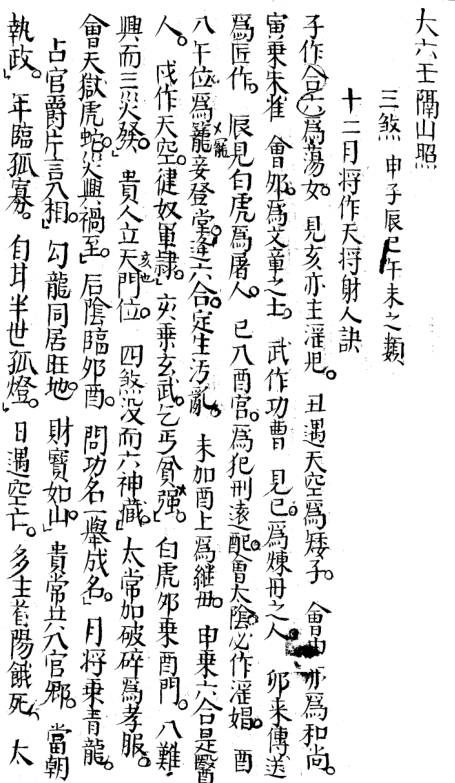 大六壬隔山照
三煞 申子辰巳午未之類
十二月将作天将射人訣
子作合六爲蕩女。見亥亦主淫児。丑遇天空爲矮子。會申亦爲和尚。
寅乗朱雀會夘。爲文章之士。武作功曹見巳。爲煉丹之人。卯来傳送
爲匠作。辰見白虎爲屠人。巳入酉宫。爲犯刑遠配。會太陰必作淫娼。酉
入午位爲寵妾登堂。逢六合。定生污亂。未加酉上爲継母。申乗六合是醫
人。戌作天空。健奴軍隷。亥乗玄武。乞丐貧強。白虎夘乗酉門。八難
興而三災發。貴人立天門位。四煞没而六神藏。太常加破碎爲孝服。
會天獄虎蛇。災興禍至。后陰臨夘酉。問功名一舉成名。月将乗青龍。
占官爵片言入相。勾龍同居旺地。財寳如山。貴常共入官鄉。當朝
執政。年臨孤寡。自甘半世孤燈。日遇空亡。多主首陽餓死。太